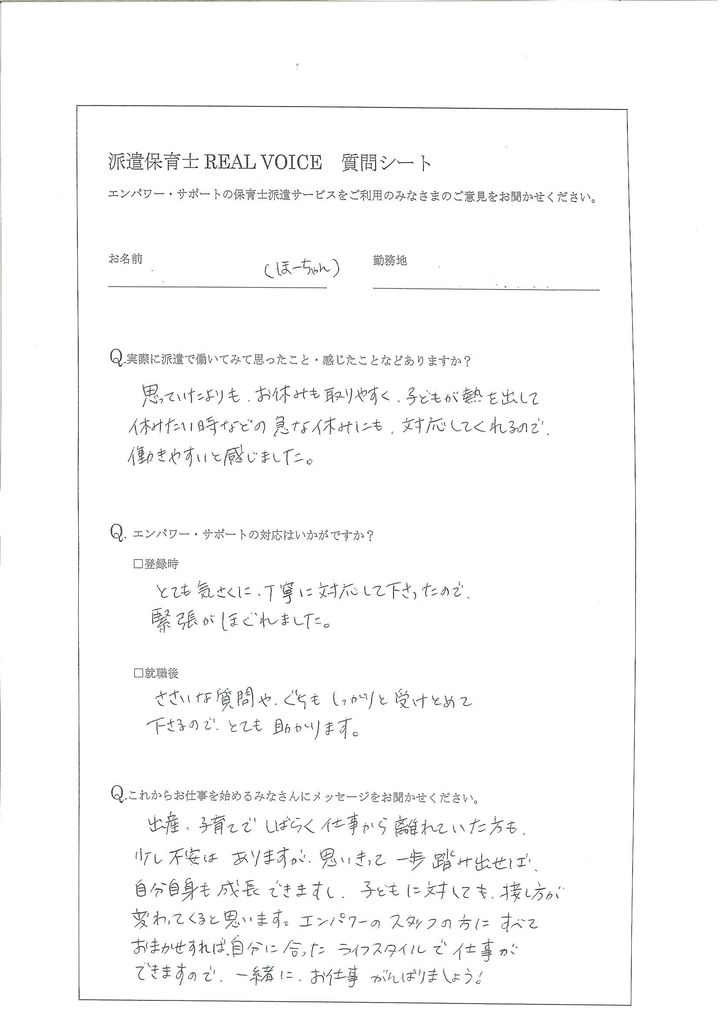 派遣保育士 REAL VOICE 質問シート
エンパワー・サポートの保育士派遣サービスをご利用のみなさまのご意見をお聞かせください。
お名前 (ほーちゃん) 勤務地
Q.実際に派遣で働いてみて思ったこと・感じたことなどありますか？
思っていたよりも、お休みも取りやすく、子どもが熱を出して
休みたい時などの急な休みにも、対応してくれるので、
働きやすいと感じました。
Q. エンパワー・サポートの対応はいかがですか？
□登録時
とても気さくに、丁寧に対応して下さったので、
緊張がほぐれました。
□就職後
ささいな質問や、ぐちもしっかりと受けとめて
下さるので、とても助かります。
Q.これからお仕事を始めるみなさんにメッセージをお聞かせください。
出産、子育てでしばらく仕事から離れていた方も、
少し不安はありますが、思いきって一歩踏み出せば、
自分自身も成長できますし、子どもに対しても、接し方が
変わってくると思います。エンパワーのスタッフの方にすべて
おまかせすれば、自分に合ったライフスタイルで仕事が
できますので、一緒に、お仕事がんばりましょう！